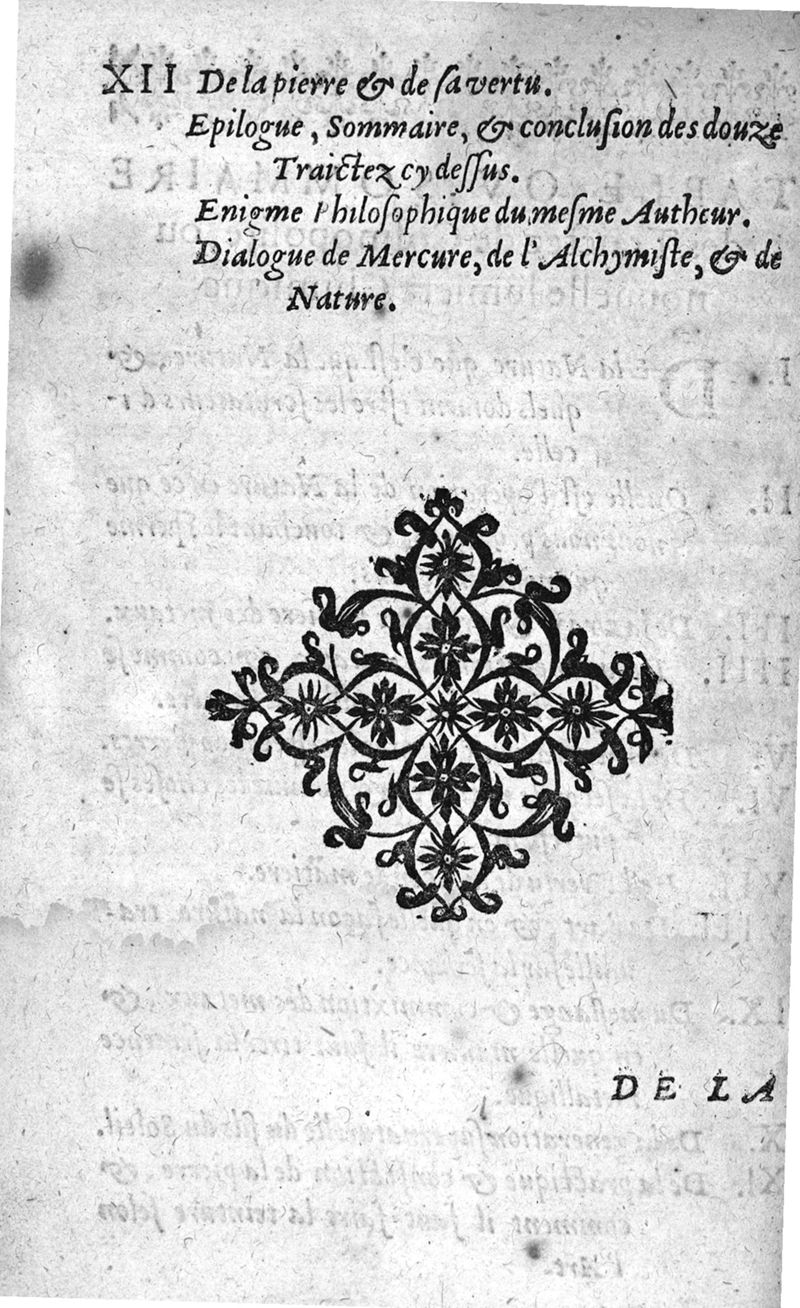 XII De la pierre & de sa vertu.
Epilogue, Sommaire, & conclusion des douze
Traictez cy dessus.
Enigme Philosophique du mesme Autheur.
Dialogue de Mercure, de l'Alchymiste, & de
Nature.
DE LA